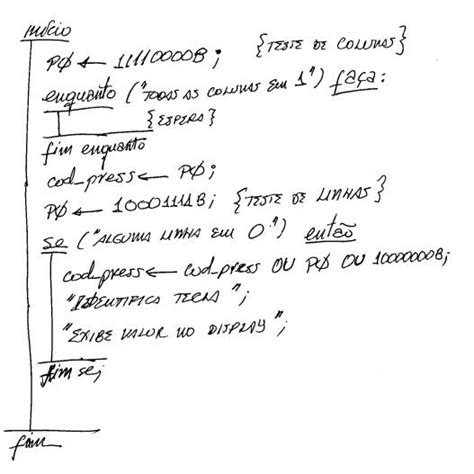 início
PØ ← 11110000B; {TESTE DE COLUNAS}
enquanto ("TODAS AS COLUNAS EM 1") faça:
{ESPERA}
fim enquanto
cod_press ← PØ;
PØ ← 10001111B; {TESTE DE LINHAS}
se ("ALGUMA LINHA EM 0") então
cod_press ← cod_press OU PØ OU 10000000B;
"IDENTIFICA TECLA";
"EXIBE VALOR NO DISPLAY";
fim se;
fim